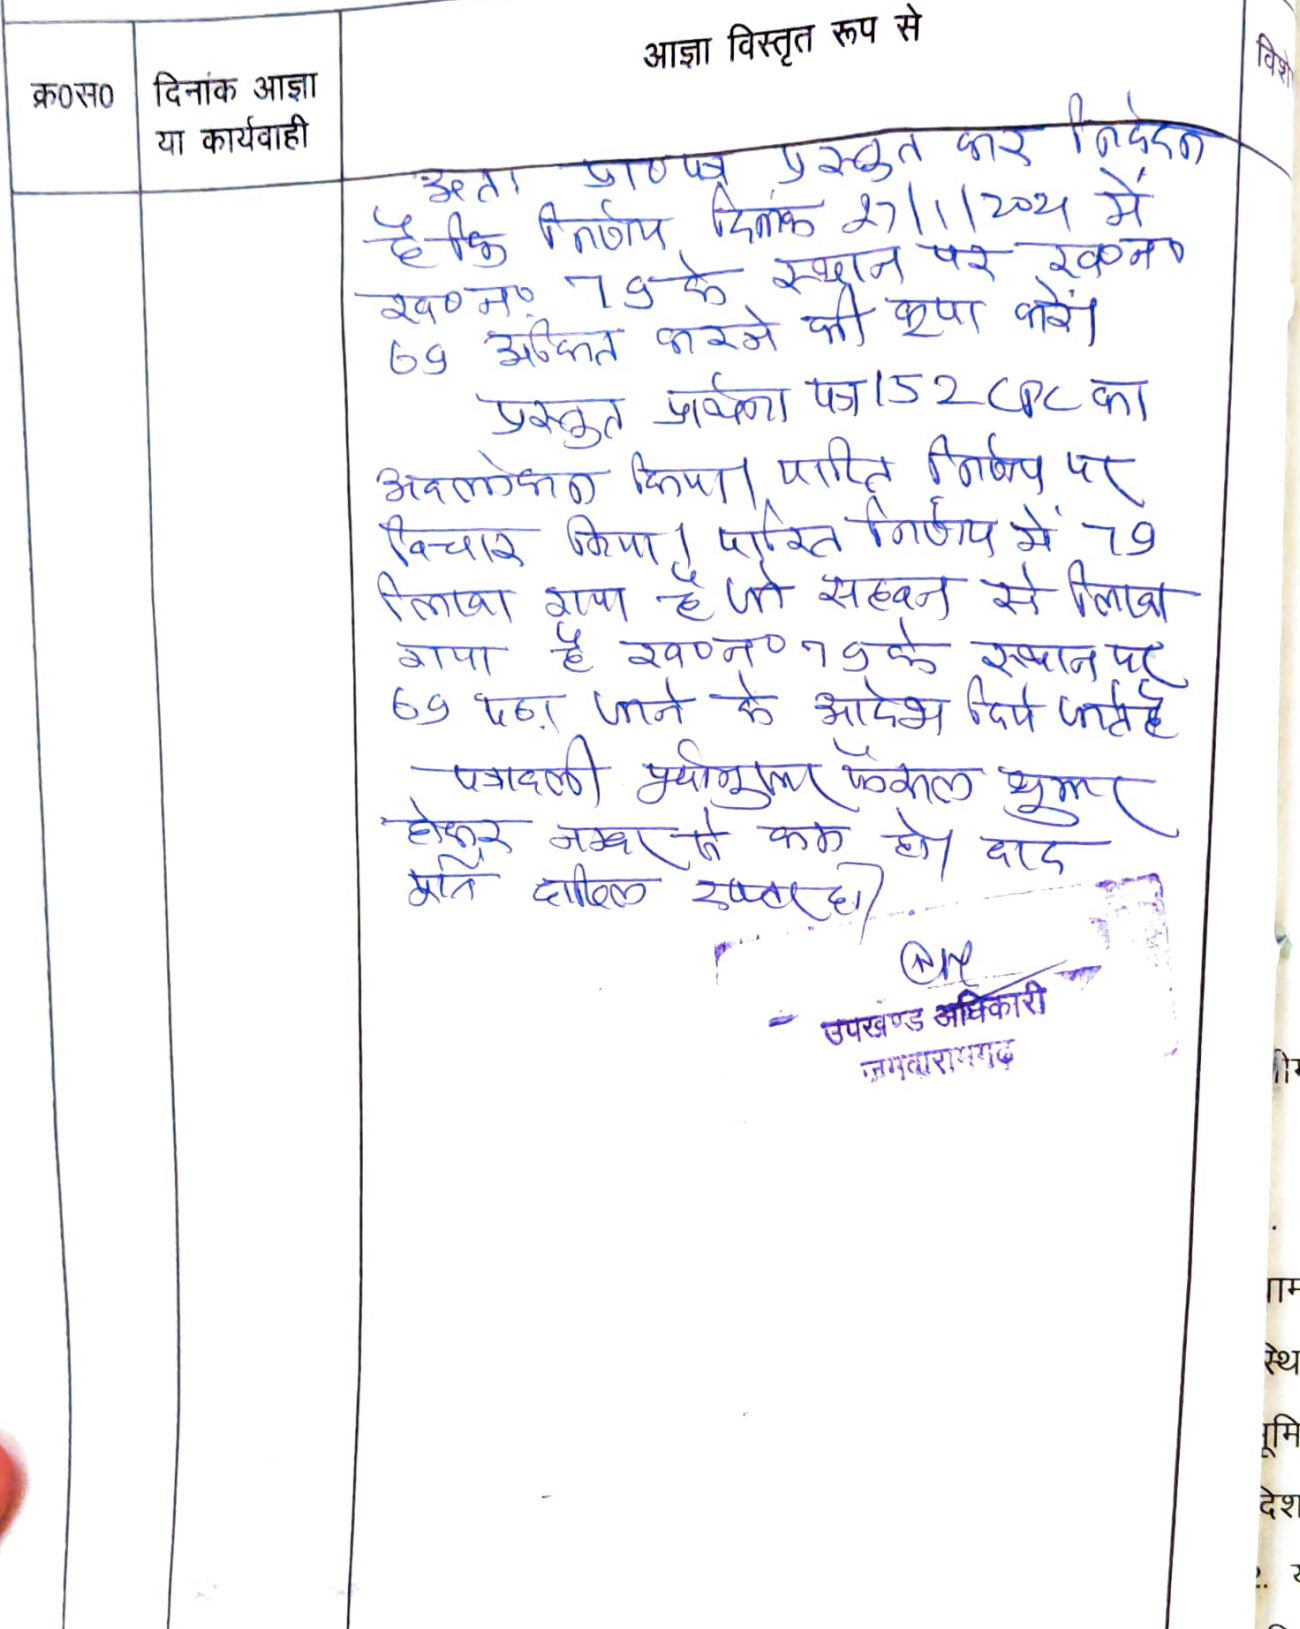 आज्ञा विस्तृत रूप से
क्र०स०
दिनांक आज्ञा
या कार्यवाही
अतः प्रा०पत्र प्रस्तुत कर निवेदन
है कि निर्णय दिनांक 27/1/2021 में
ख०न० 79 के स्थान पर ख०न०
69 अंकित करने की कृपा करें।
प्रस्तुत प्रार्थना पत्र 152 CPC का
अवलोकन किया। पारित निर्णय पर
विचार किया। पारित निर्णय में 79
लिखा गया है जो सहवन से लिखा
गया है ख०न० 79 के स्थान पर
69 पढ़ा जाने के आदेश दिये जाते है
पत्रावली फैसल शुमार
होकर नम्बर से कम हो। बाद
दाखिल दफ्तर हो।
उपखण्ड अधिकारी
जमवारामगढ
स्थि
देश